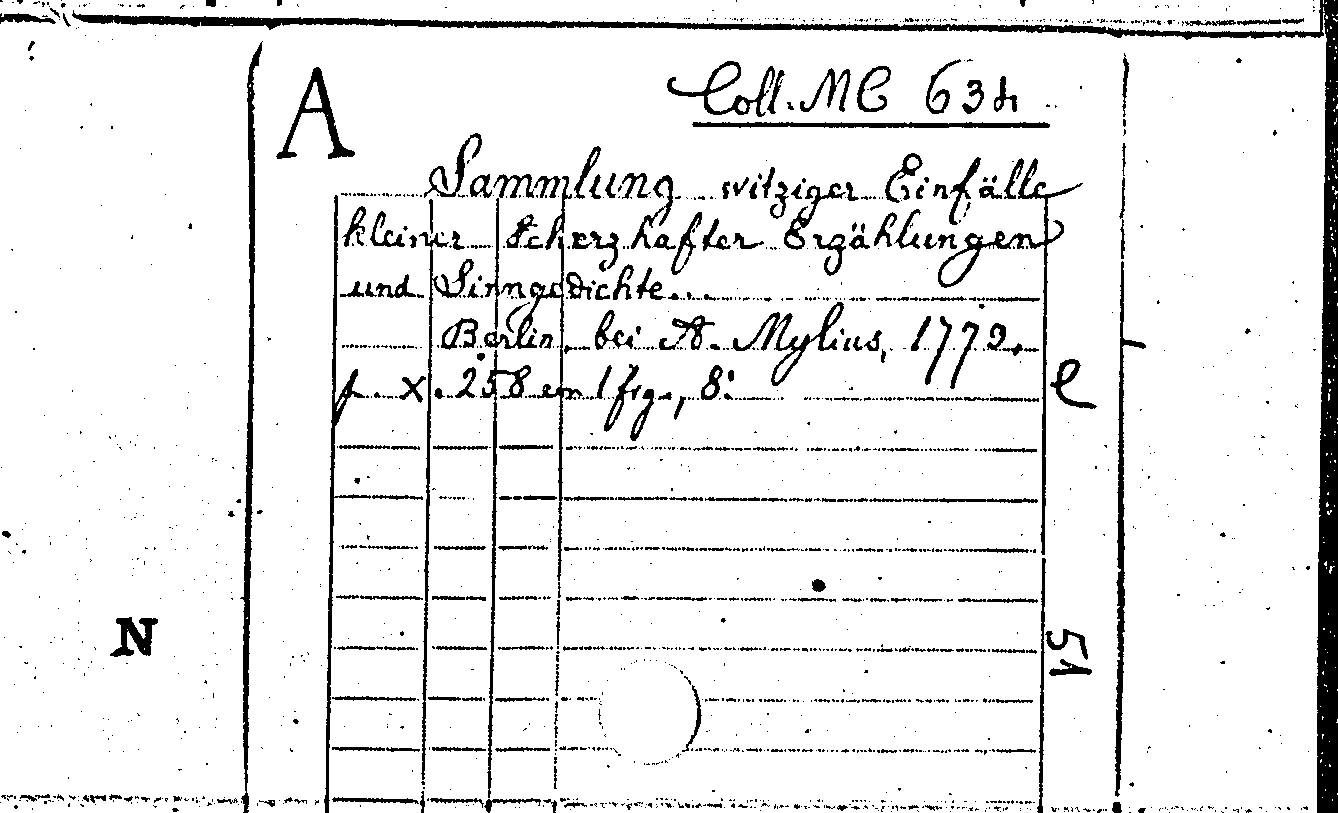 A
Coll. MC 634
Sammlung witziger Einfälle
kleiner scherzhafter Erzählungen
und Sinngedichte...
Berlin, bei A. Mylius, 1779.
p. X. 258 en 1 frg., 8°.
e
N
51